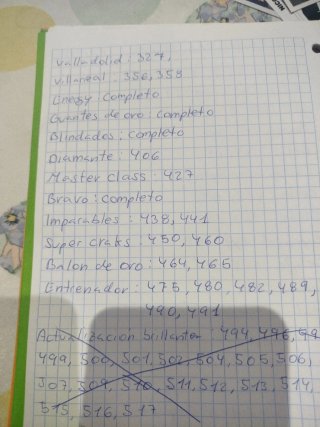 Valladolid: 327,
Villareal: 356, 358
Energy: Completo
Guantes de oro: completo
Blindados: completo
Diamante: 406
Master class: 427
Bravo: completo
Imparables: 438, 441
Super craks: 450, 460
Balon de oro: 464, 465
Entrenador: 475, 480, 482, 489,
490, 491
Actualización brillanter: 494, 496,
499, 500, 501, 502, 504, 505, 506,
507, 509, 510, 511, 512, 513, 514,
515, 516, 517